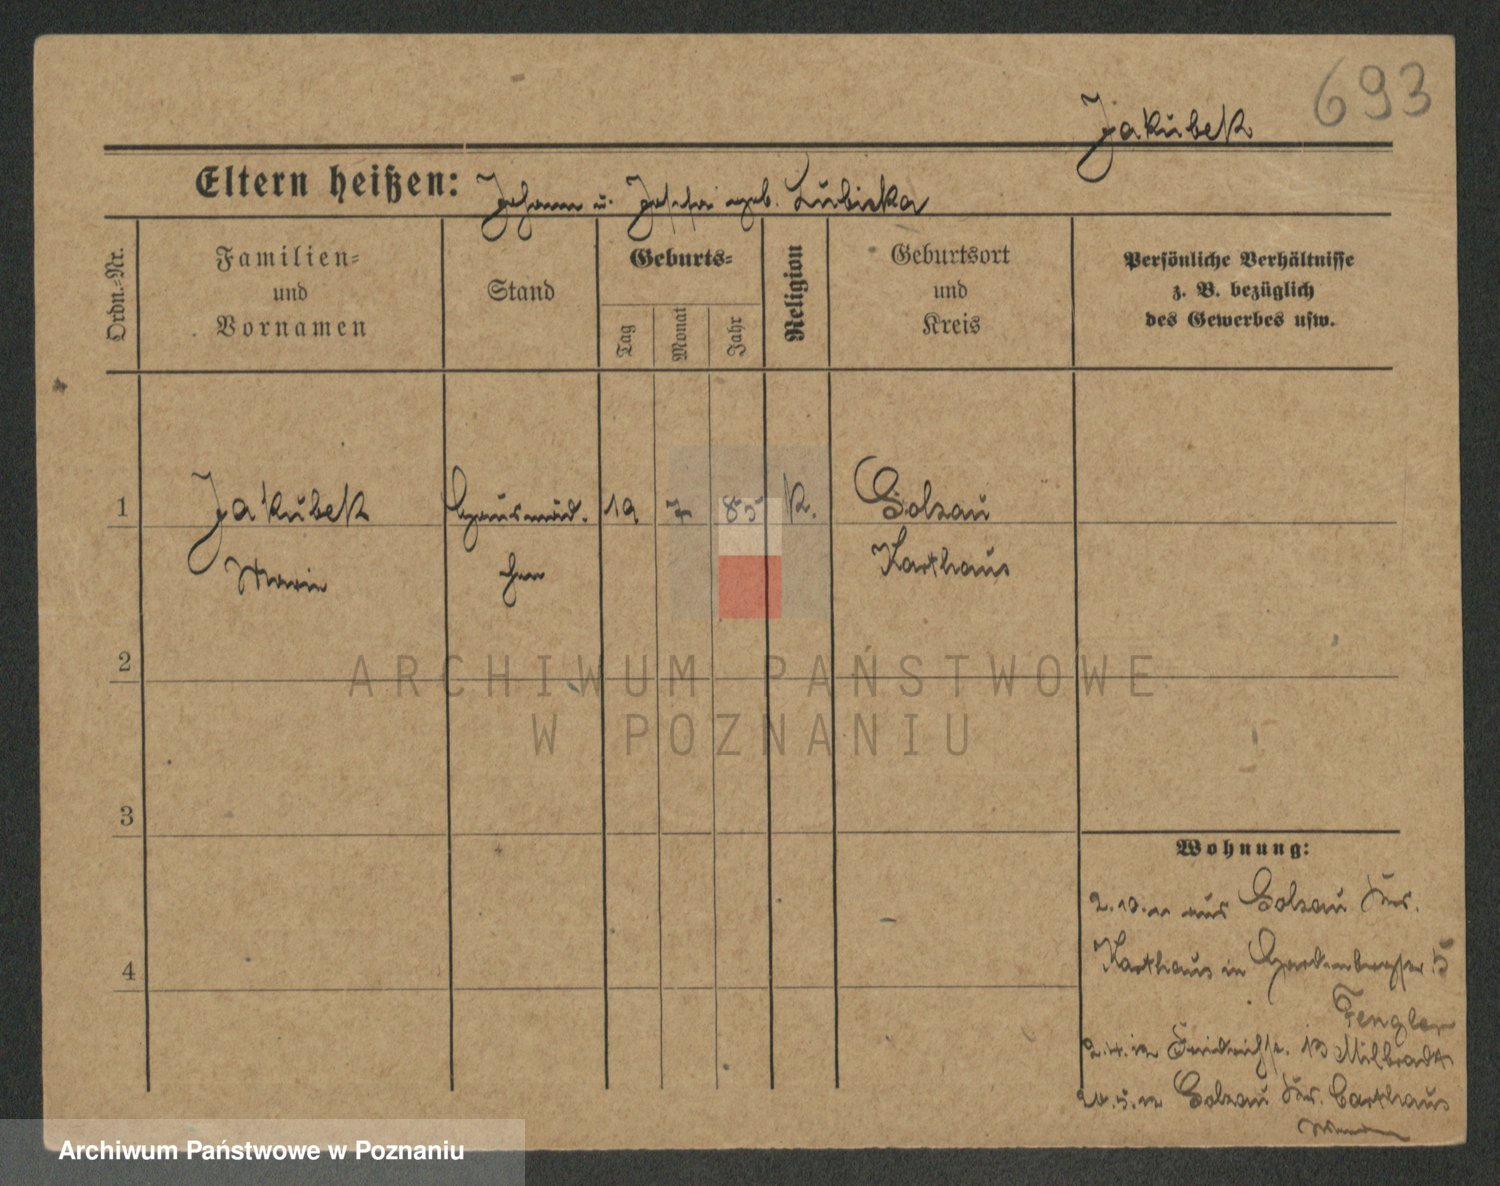 693
Jakubek
Eltern heißen: Johann u. Josefa geb. Lubicka
Ordn.-Nr.
Familien-
und
Vornamen
Stand
Geburts-
Tag
Monat
Jahr
Religion
Geburtsort
und
Kreis
Persönliche Verhältnisse
z. B. bezüglich
des Gewerbes usw.
1 Jakubek Hausmäd. 19 7 85 K. Golzau
Marie chen Karthaus
2
3
4
Wohnung:
2.10.11 aus Golzau Krs.
Karthaus in Hardenbergstr 5
Fengler
2.4.12 Friedrichstr. 13 Milbradt
20.5.12 Golzau Krs. Carthaus
ARCHIWUM PAŃSTWOWE
W POZNANIU
Archiwum Państwowe w Poznaniu